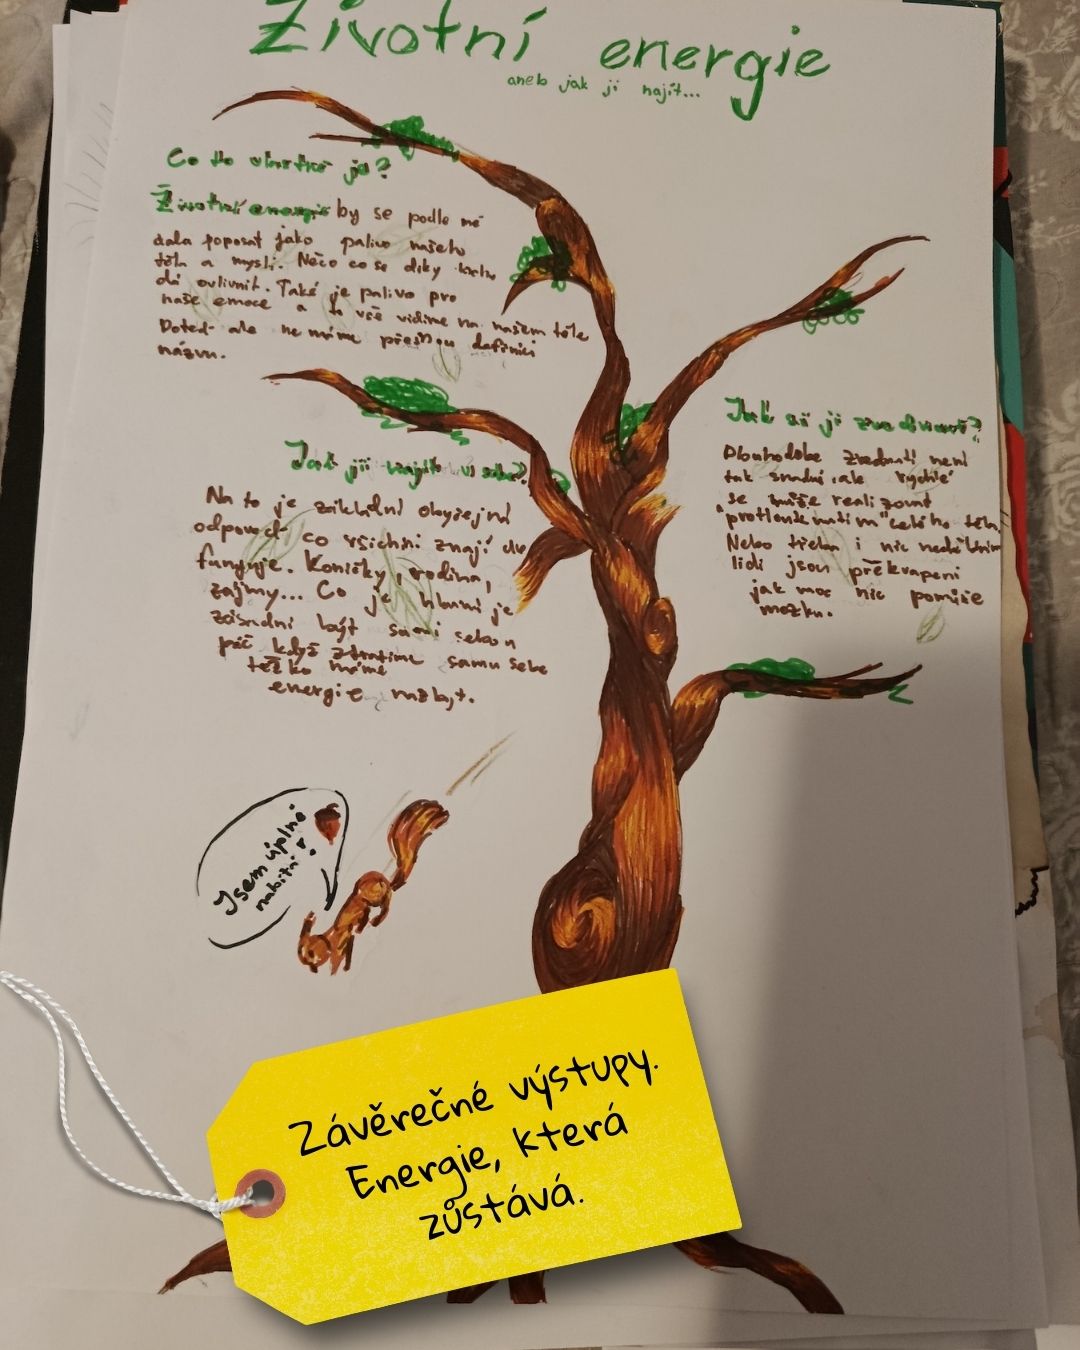 Životní energie
aneb jak ji najít...
Co to vlastně je?
Životní energie by se podle mě
dala poposat jako palivo našeho
těla a mysli. Něco co se díky
dá ovlivnit. Také je palivo pro
naše emoce a to vše vidíme na našem těle
Doteď ale ne máme přesnou definici
názvu.
Jak ji najít v sobě?
Na to je základní obyčejní
odpověď co všichni znají
funguje. Koníčky, rodina,
zájmy... Co je hlavní je
zásadní být sami sebou
páč když ztratíme samu sebe
těžko máme
energie nazbyt.
Jak si ji zvednout?
Dlouhodobé zvednutí není
tak snadné, ale rychlé
se může realizovat
"protlouknutím" celého těla
Nebo třeba i nic neděláním
lidi jsou překvapení
jak moc nic pomůže
mozku.
Jsem úplně
nabitá!
Závěrečné výstupy.
Energie, která
zůstává.